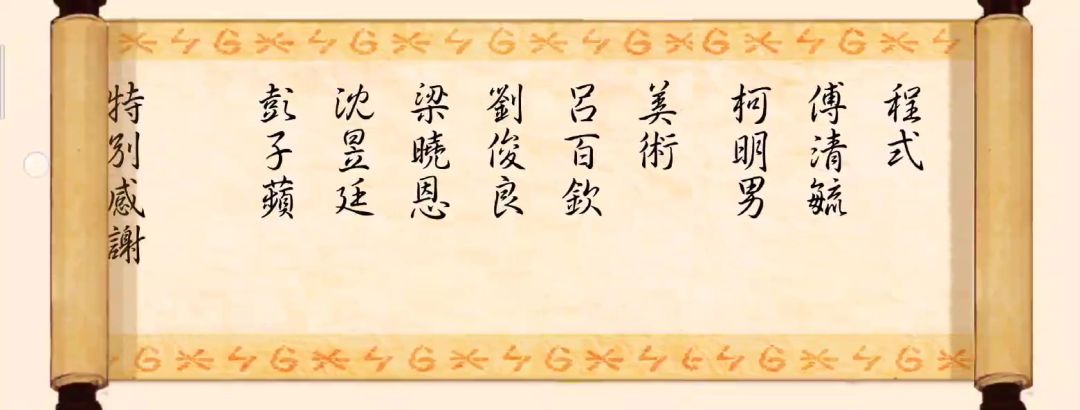 程式
傅清毓
柯明男
美術
呂百欽
劉俊良
梁曉恩
沈昱廷
彭子蘋
特別感謝